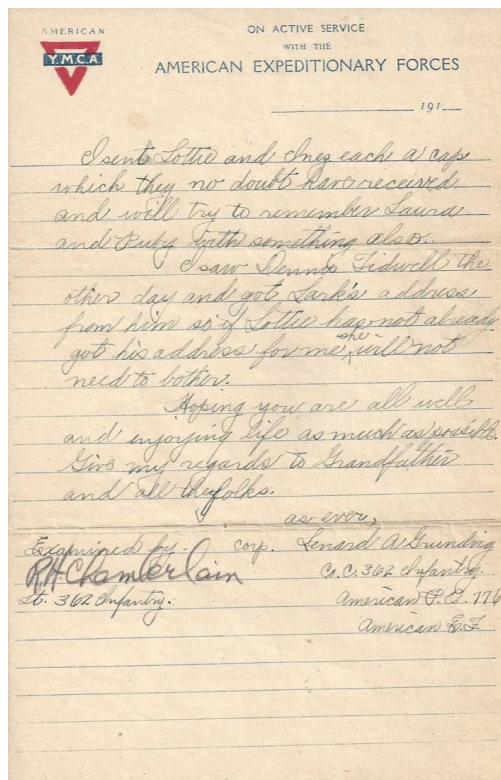 AMERICAN
Y.M.C.A
ON ACTIVE SERVICE
WITH THE
AMERICAN EXPEDITIONARY FORCES
191
I sent Lottie and Inez each a cap
which they no doubt have received
and will try to remember Laura
and Ruby with something also.
I saw Dennis Tidwell the
other day and got Lark's address
from him so if Lottie has not already
got his address for me, she will not
need to bother.
Hoping you are all well
and enjoying life as much as possible.
Give my regards to Grandfather
and all the folks.
as ever,
Examined by. Corp. Lenard A Grundvig
R H Chamberlain Co. C. 362 Infantry.
Lt. 362 Infantry. American P.O. 776
American E.F.